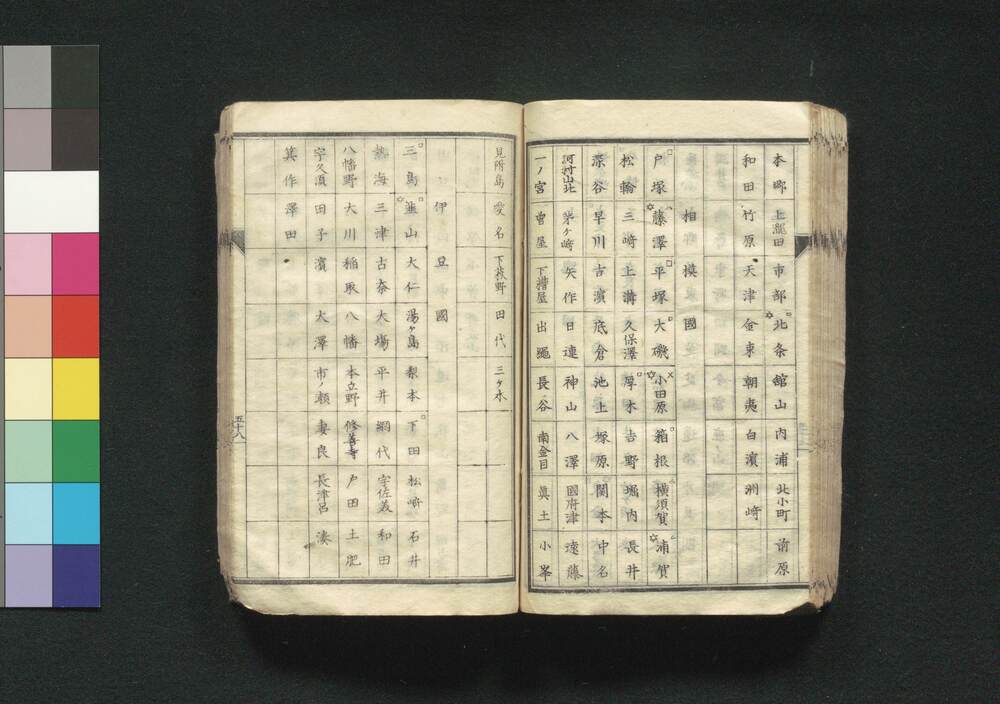 本郷 上瀧田 市部 北条 舘山 内浦 北小町 前原
和田 竹原 天津 金束 朝夷 白濱 洲﨑
相模國
戸塚 藤澤 平塚 大磯 小田原 箱根 横須賀 浦賀
松輪 三﨑 上溝 久保澤 厚木 吉野 堀内 長井
深谷 早川 吉濱 底倉 池上 塚原 関本 中名
河村山北 茅ケ﨑 矢作 日連 神山 八澤 國府津 遠藤
一ノ宮 曽屋 下糟屋 出縄 長谷 南金目 眞土 小峯
見所島 愛名 下荻野 田代 三ケ木
伊豆國
三島 韮山 大仁 湯ケ島 梨本 下田 松﨑 石井
熱海 三津 古奈 大場 平井 網代 宇佐美 和田
八幡野 大川 稲取 八幡 本立野 修善寺 戸田 土肥
宇久須 田子 濱 大澤 市ノ瀬 妻良 長津呂 湊
箕作 澤田
五十八